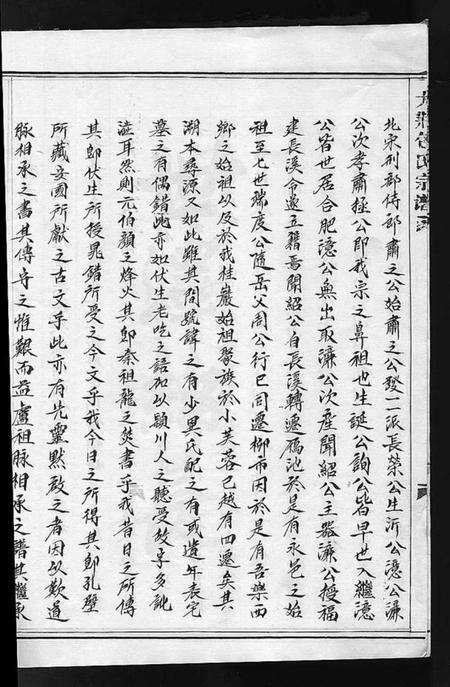 北宋刑部侍郎肅之公始肅之公發二派長榮公生沂公澺公濂
公次孝肅拯公即我宗之鼻祖也生誕公詢公皆早世入繼澺
公皆世居合肥澺公無出取濂公次産聞紹公主器濂公授福
建長溪令遂立籍焉聞紹公自長溪轉遷鴈池於是有永邑之始
祖至七世端度公隨岳父周公行已同遷柳市因於是有吾樂西
鄉之始祖以及於我桂巖始祖聚族於小芙蓉已越有四遷矣其
溯本尋源又如此雖其間號諱之有少異氏配之有或遺年表宅
墓之有偶錯此亦如伏生老吃之語加以潁川人之聽受故等多訛
謬耳然則元伯顏之烽火其即秦祖龍之焚書乎我昔日之所傳
其即伏生所授晁錯所受之今文乎我今日之所得其即孔壁
所藏安國所獻之古文乎此亦有先靈默啟之者因以歎道
脉相承之書其傳守之惟艱而益慮祖脉相承之譜其繼承